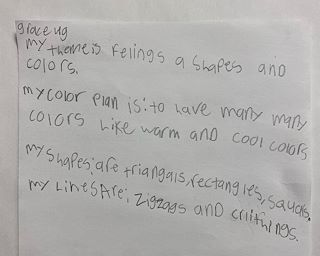 grace ug
my theme is Felings a shapes and
colors.
my color plan is: to have many many
colors like warm and cool colors
my shapes: are triangals, rectangles, sauals.
my Lines Are: zigzags and criithings.